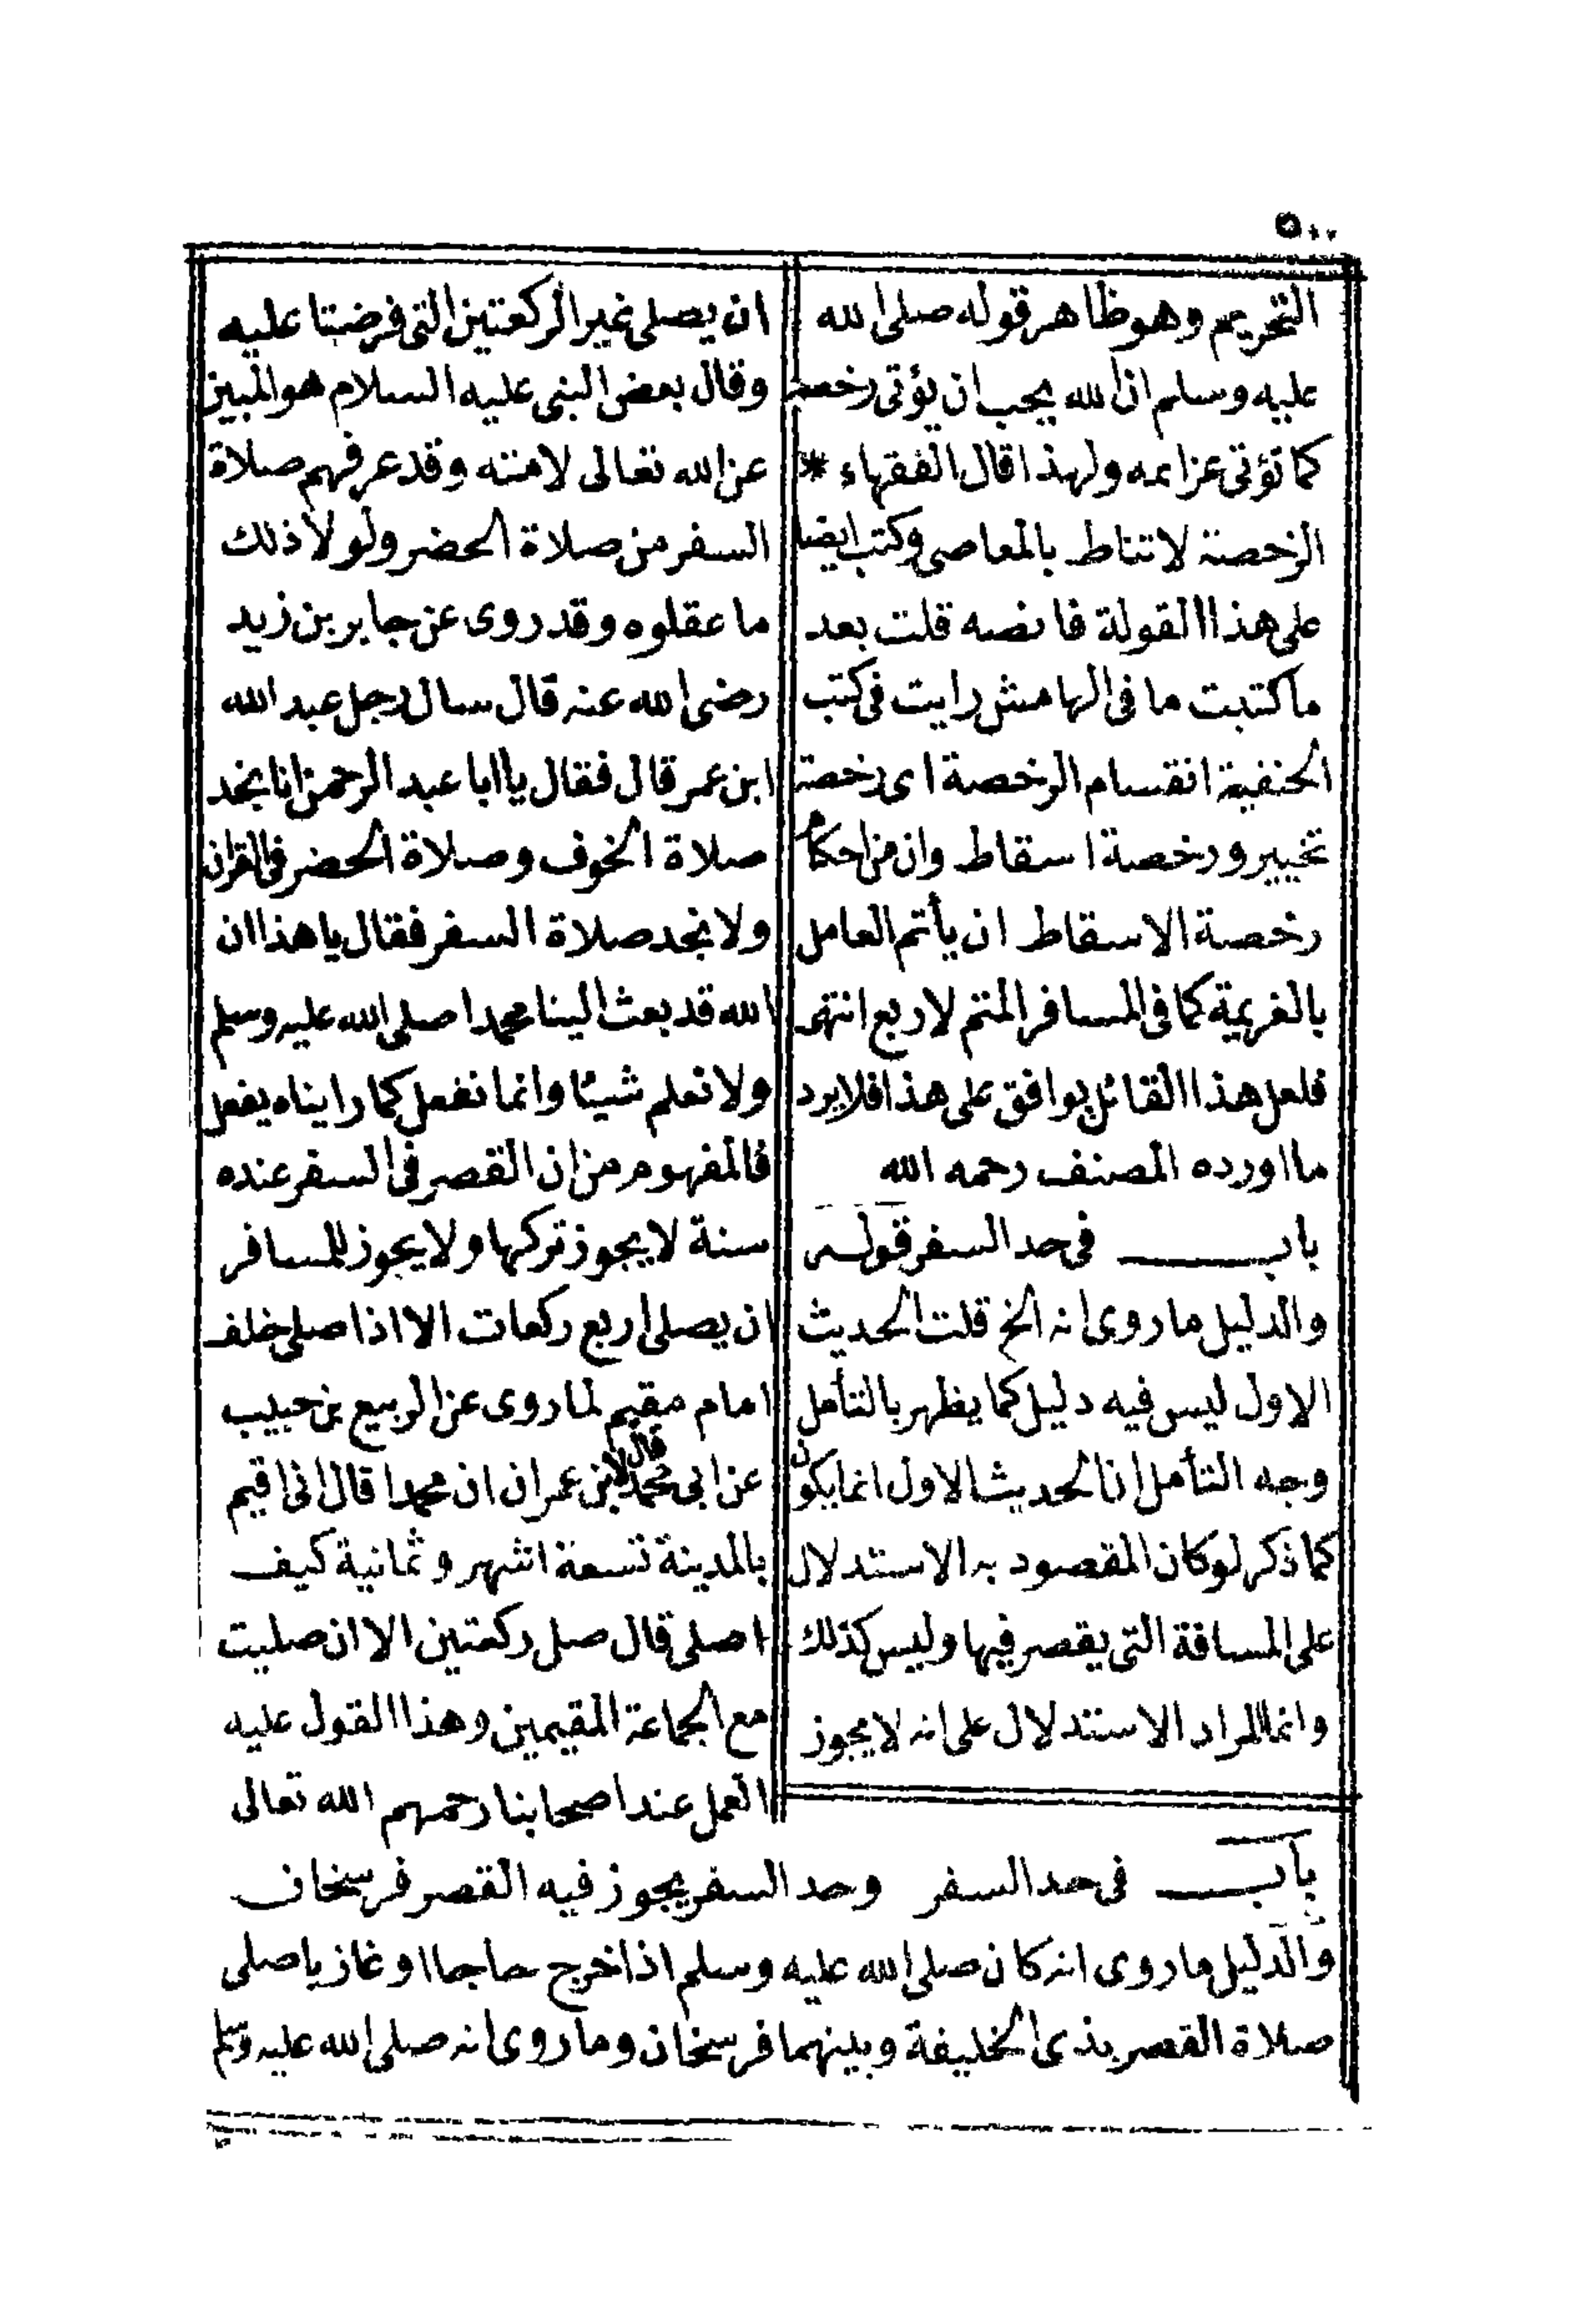 ٥٠٠
التحريم وهو ظاهر قوله صلى الله
عليه وسلم ان الله يحب ان يؤتى رخصه
كما تؤتى عزايمه ولهذا قال الفقهاء *
الرخصة لا تناط بالمعاصى وكتب ايضا
على هذا القولة فانصه قلت بعد
ما كتبت ما فى الهامش رايت فى كتب
الحنفية انقسام الرخصة اى رخصة
تخيير ورخصة اسقاط وان من احكام
رخصة الاسقاط ان يأتم العامل
بالغريمة كما فى المسافر المتم لاربع انتهى
فلعل هذا القائل يوافق على هذا فلا يرد
ما اورده المصنف رحمه الله
باب فى حد السفر قوله
والدليل ما روى انه الخ قلت الحديث
الاول ليس فيه دليل كما يظهر بالتأمل
وجه التأمل ان الحديث الاول انما يكون
كما ذكر لو كان المقصود به الاستدلال
على المسافة التى يقصر فيها وليس كذلك
وانما المراد الاستدلال على انه لا يجوز
ان يصلى غير الركعتين التى فرضتا عليه
وقال بعض النبى عليه السلام هو المبين
عن الله تعالى لامته وقد عرفهم صلاة
السفر من صلاة الحضر ولولا ذلك
ما عقلوه وقد روى عن جابر بن زيد
رضى الله عنه قال سال رجل عبد الله
ابن عمر قال فقال يا ابا عبد الرحمن انا نجد
صلاة الخوف وصلاة الحضر فى القران
ولا نجد صلاة السفر فقال يا هذا ان
الله قد بعث الينا محمدا صلى الله عليه وسلم
ولا نعلم شيئا وانما نفعل كما رايناه يفعل
فالمفهوم من ان القصر فى السفر عنده
سنة لا يجوز تركها ولا يجوز للمسافر
ان يصلى اربع ركعات الا اذا صلى خلف
امام مقيم لما روى عن الربيع بن حبيب
عن ابى محمد قال لابن عمران ان محمدا قال انى اقيم
بالمدينة تسعة اشهر وثمانية كيف
اصلى قال صل ركعتين الا ان صليت
مع الجماعة المقيمين وهذا القول عليه
العمل عند اصحابنا رحمهم الله تعالى
باب فى حد السفر وحد السفر يجوز فيه القصر فرسخان
والدليل ما روى انه كان صلى الله عليه وسلم اذا خرج حاجا او غازيا صلى
صلاة القصر بذى الخليفة وبينهما فرسخان وما روى انه صلى الله عليه وسلم